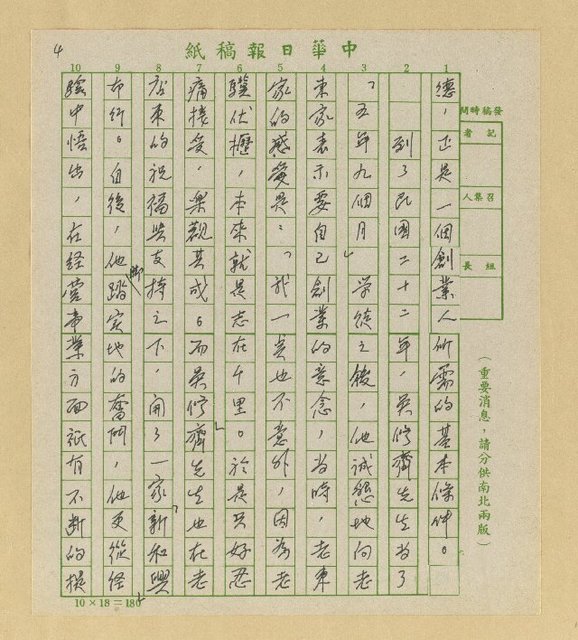 4
中華日報稿紙
發稿時間
記者
召集人
組長
(重要消息,請分供南北兩版)
1 2 3 4 5 6 7 8 9 10
德,正是一個創業人所需的基本條件。
到了民國二十二年,吳修齊先生當了
「五年九個月」學徒之後,他誠懇地向老
東家表示要自己創業的意念,當時,老東
家的感覺是:「我一點也不意外,因為老
驥伏櫪,本來就是志在千里。」於是只好忍
痛接受,樂觀其成。而吳修齊先生也在老
東的祝福與支持之下,開了一家「新和興」
布行。自後,他腳踏實地的奮鬥,他更從經
驗中悟出,在經營事業方面祇有不斷的
10×18=180